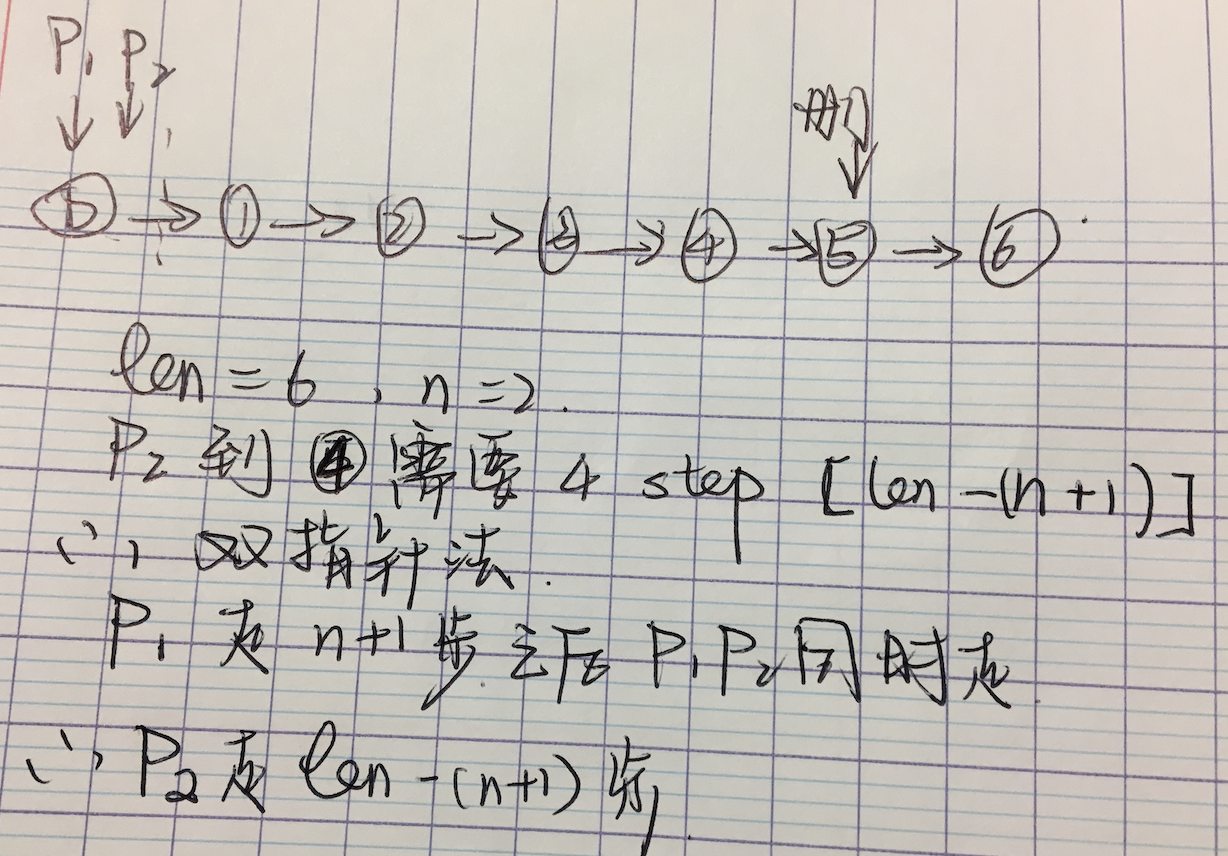 P₁ P₂
删
D → ① → ② → ③ → ④ → ⑤ → ⑥
len = 6 , n = 2.
P₂ 到 ④ 需要 4 step [len - (n + 1)]
∴ 双指针法.
P₁ 走 n+1 步 之后 P₁ P₂ 同时走
∴ P₂ 走 len - (n+1) 步